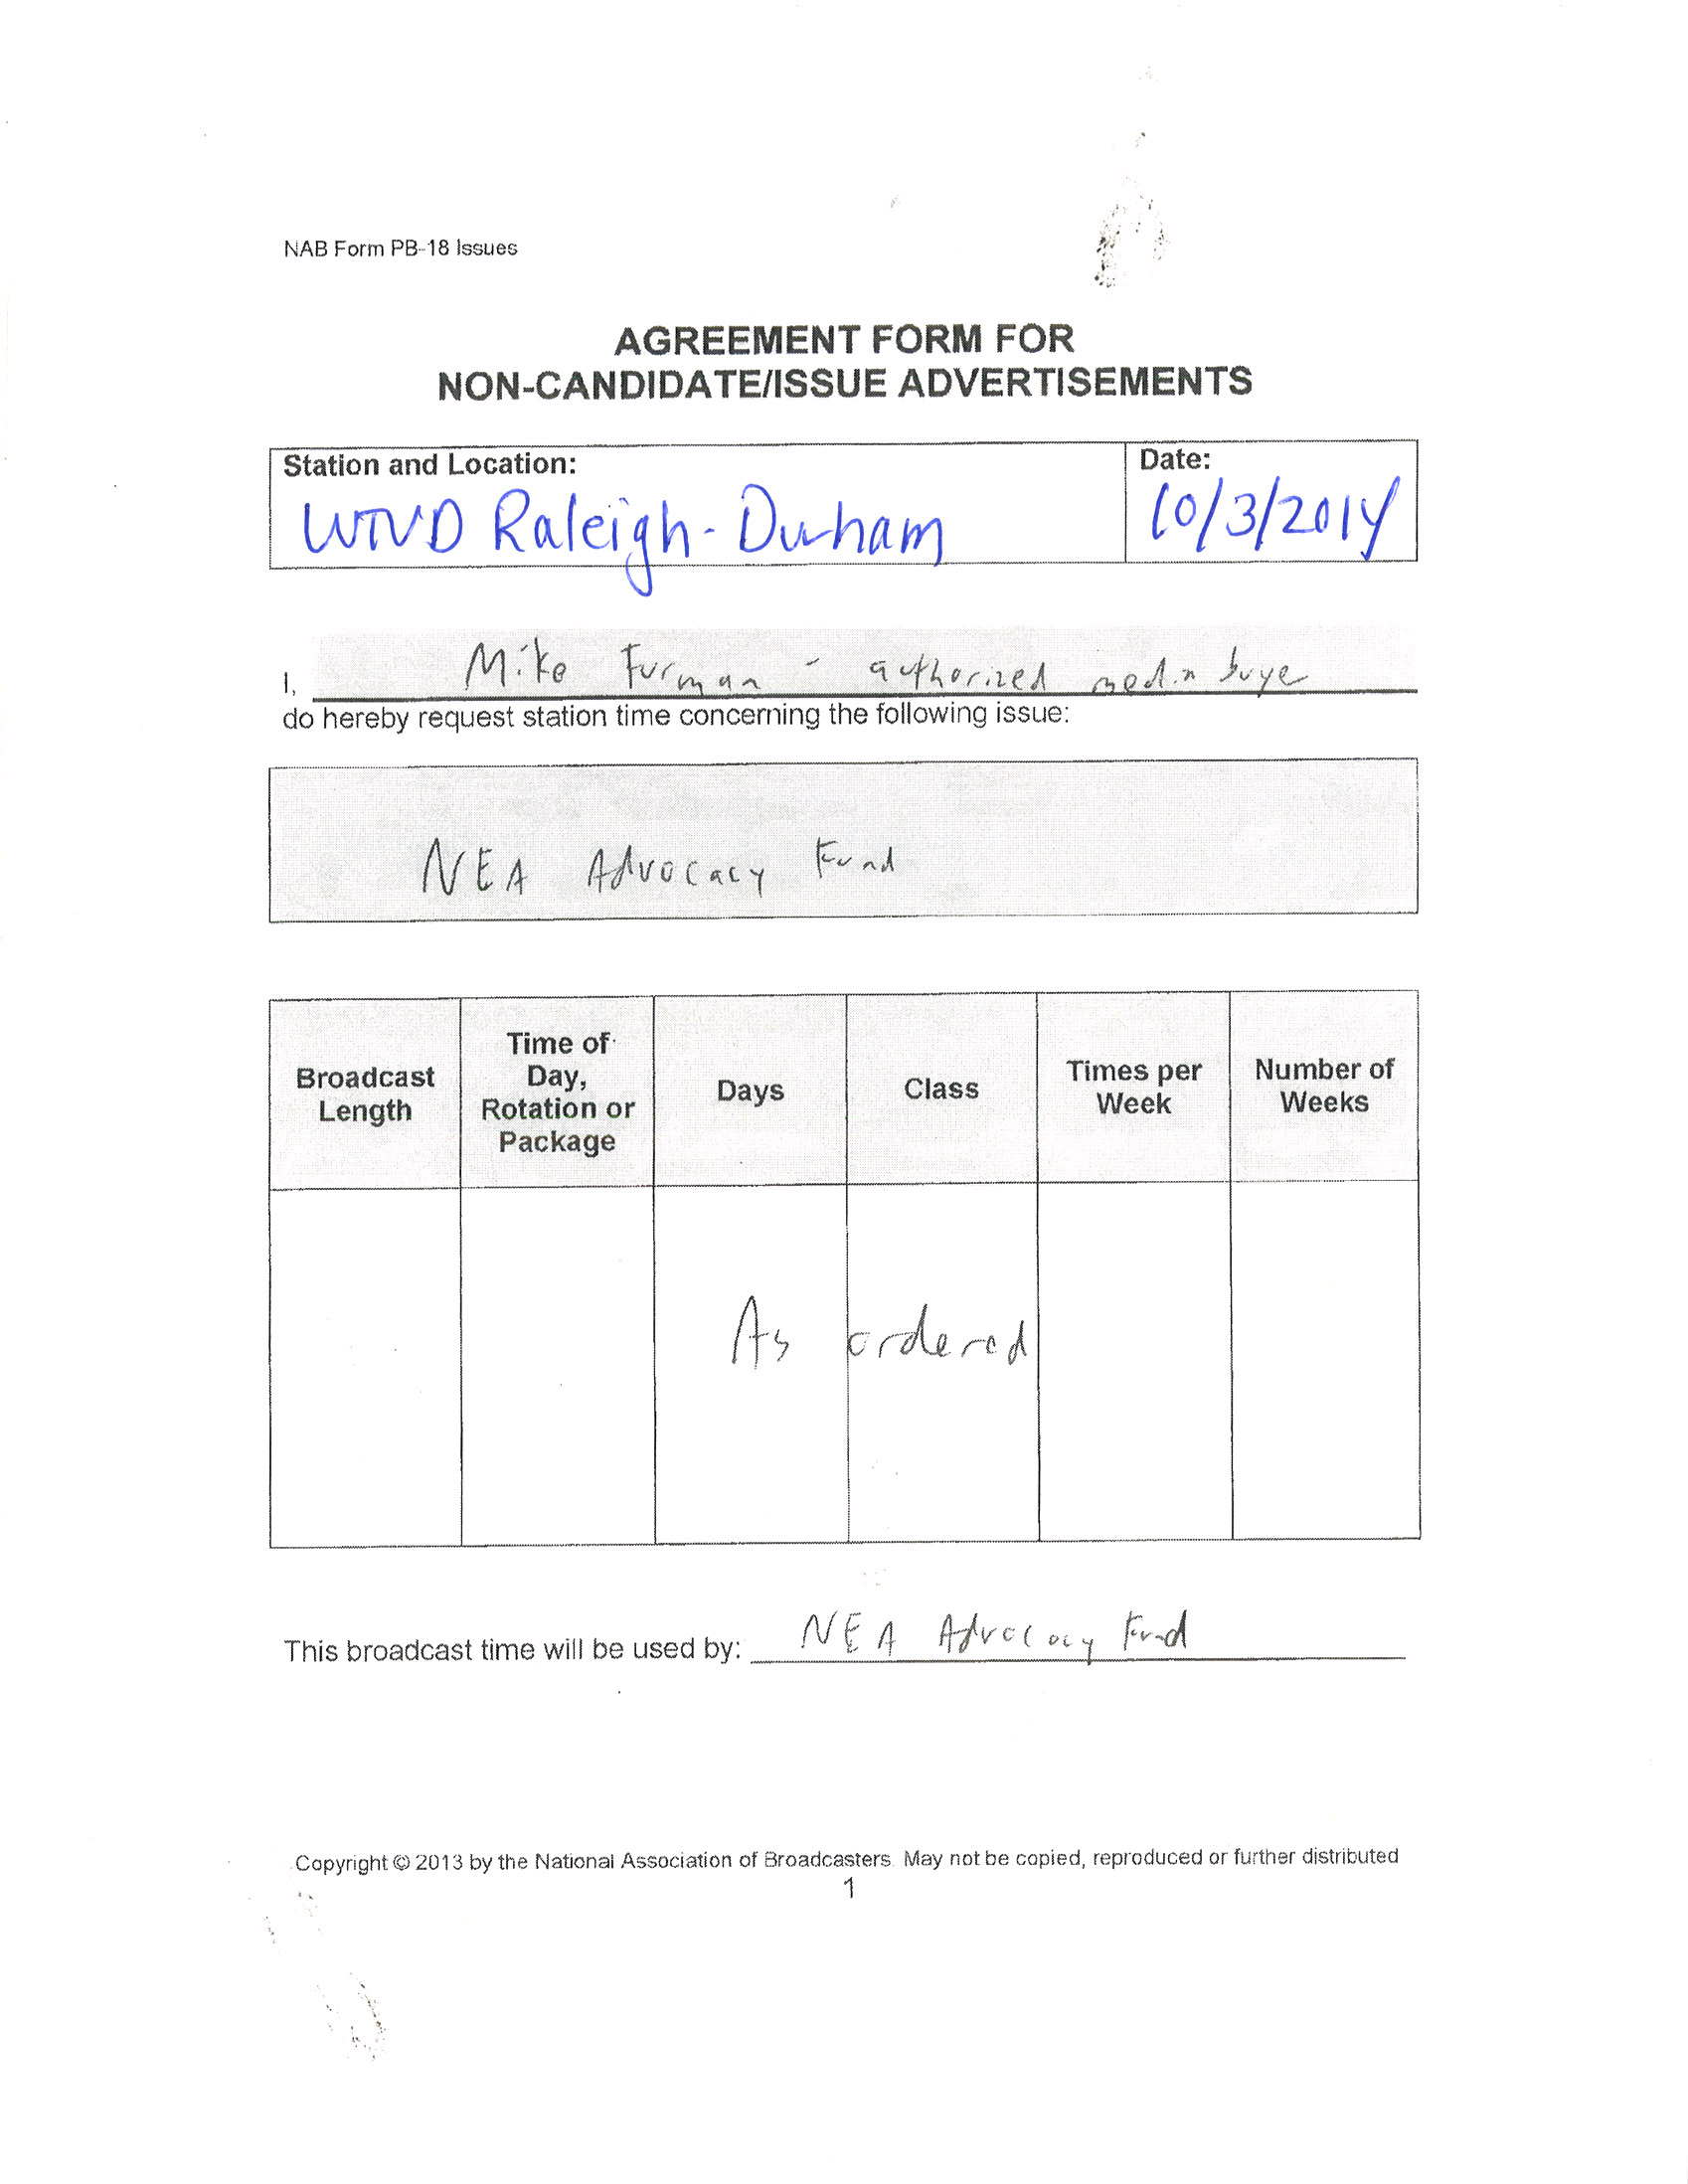 NAB Form PB-18 Issues
AGREEMENT FORM FOR
NON-CANDIDATE/ISSUE ADVERTISEMENTS
Station and Location:
Date:
WTVD Raleigh-Durham
10/3/2014
I, Mike Furman - authorized media buye
do hereby request station time concerning the following issue:
NEA Advocacy Fund
Broadcast Length
Time of Day, Rotation or Package
Days
Class
Times per Week
Number of Weeks
As ordered
This broadcast time will be used by: NEA Advocacy Fund
Copyright © 2013 by the National Association of Broadcasters. May not be copied, reproduced or further distributed
1